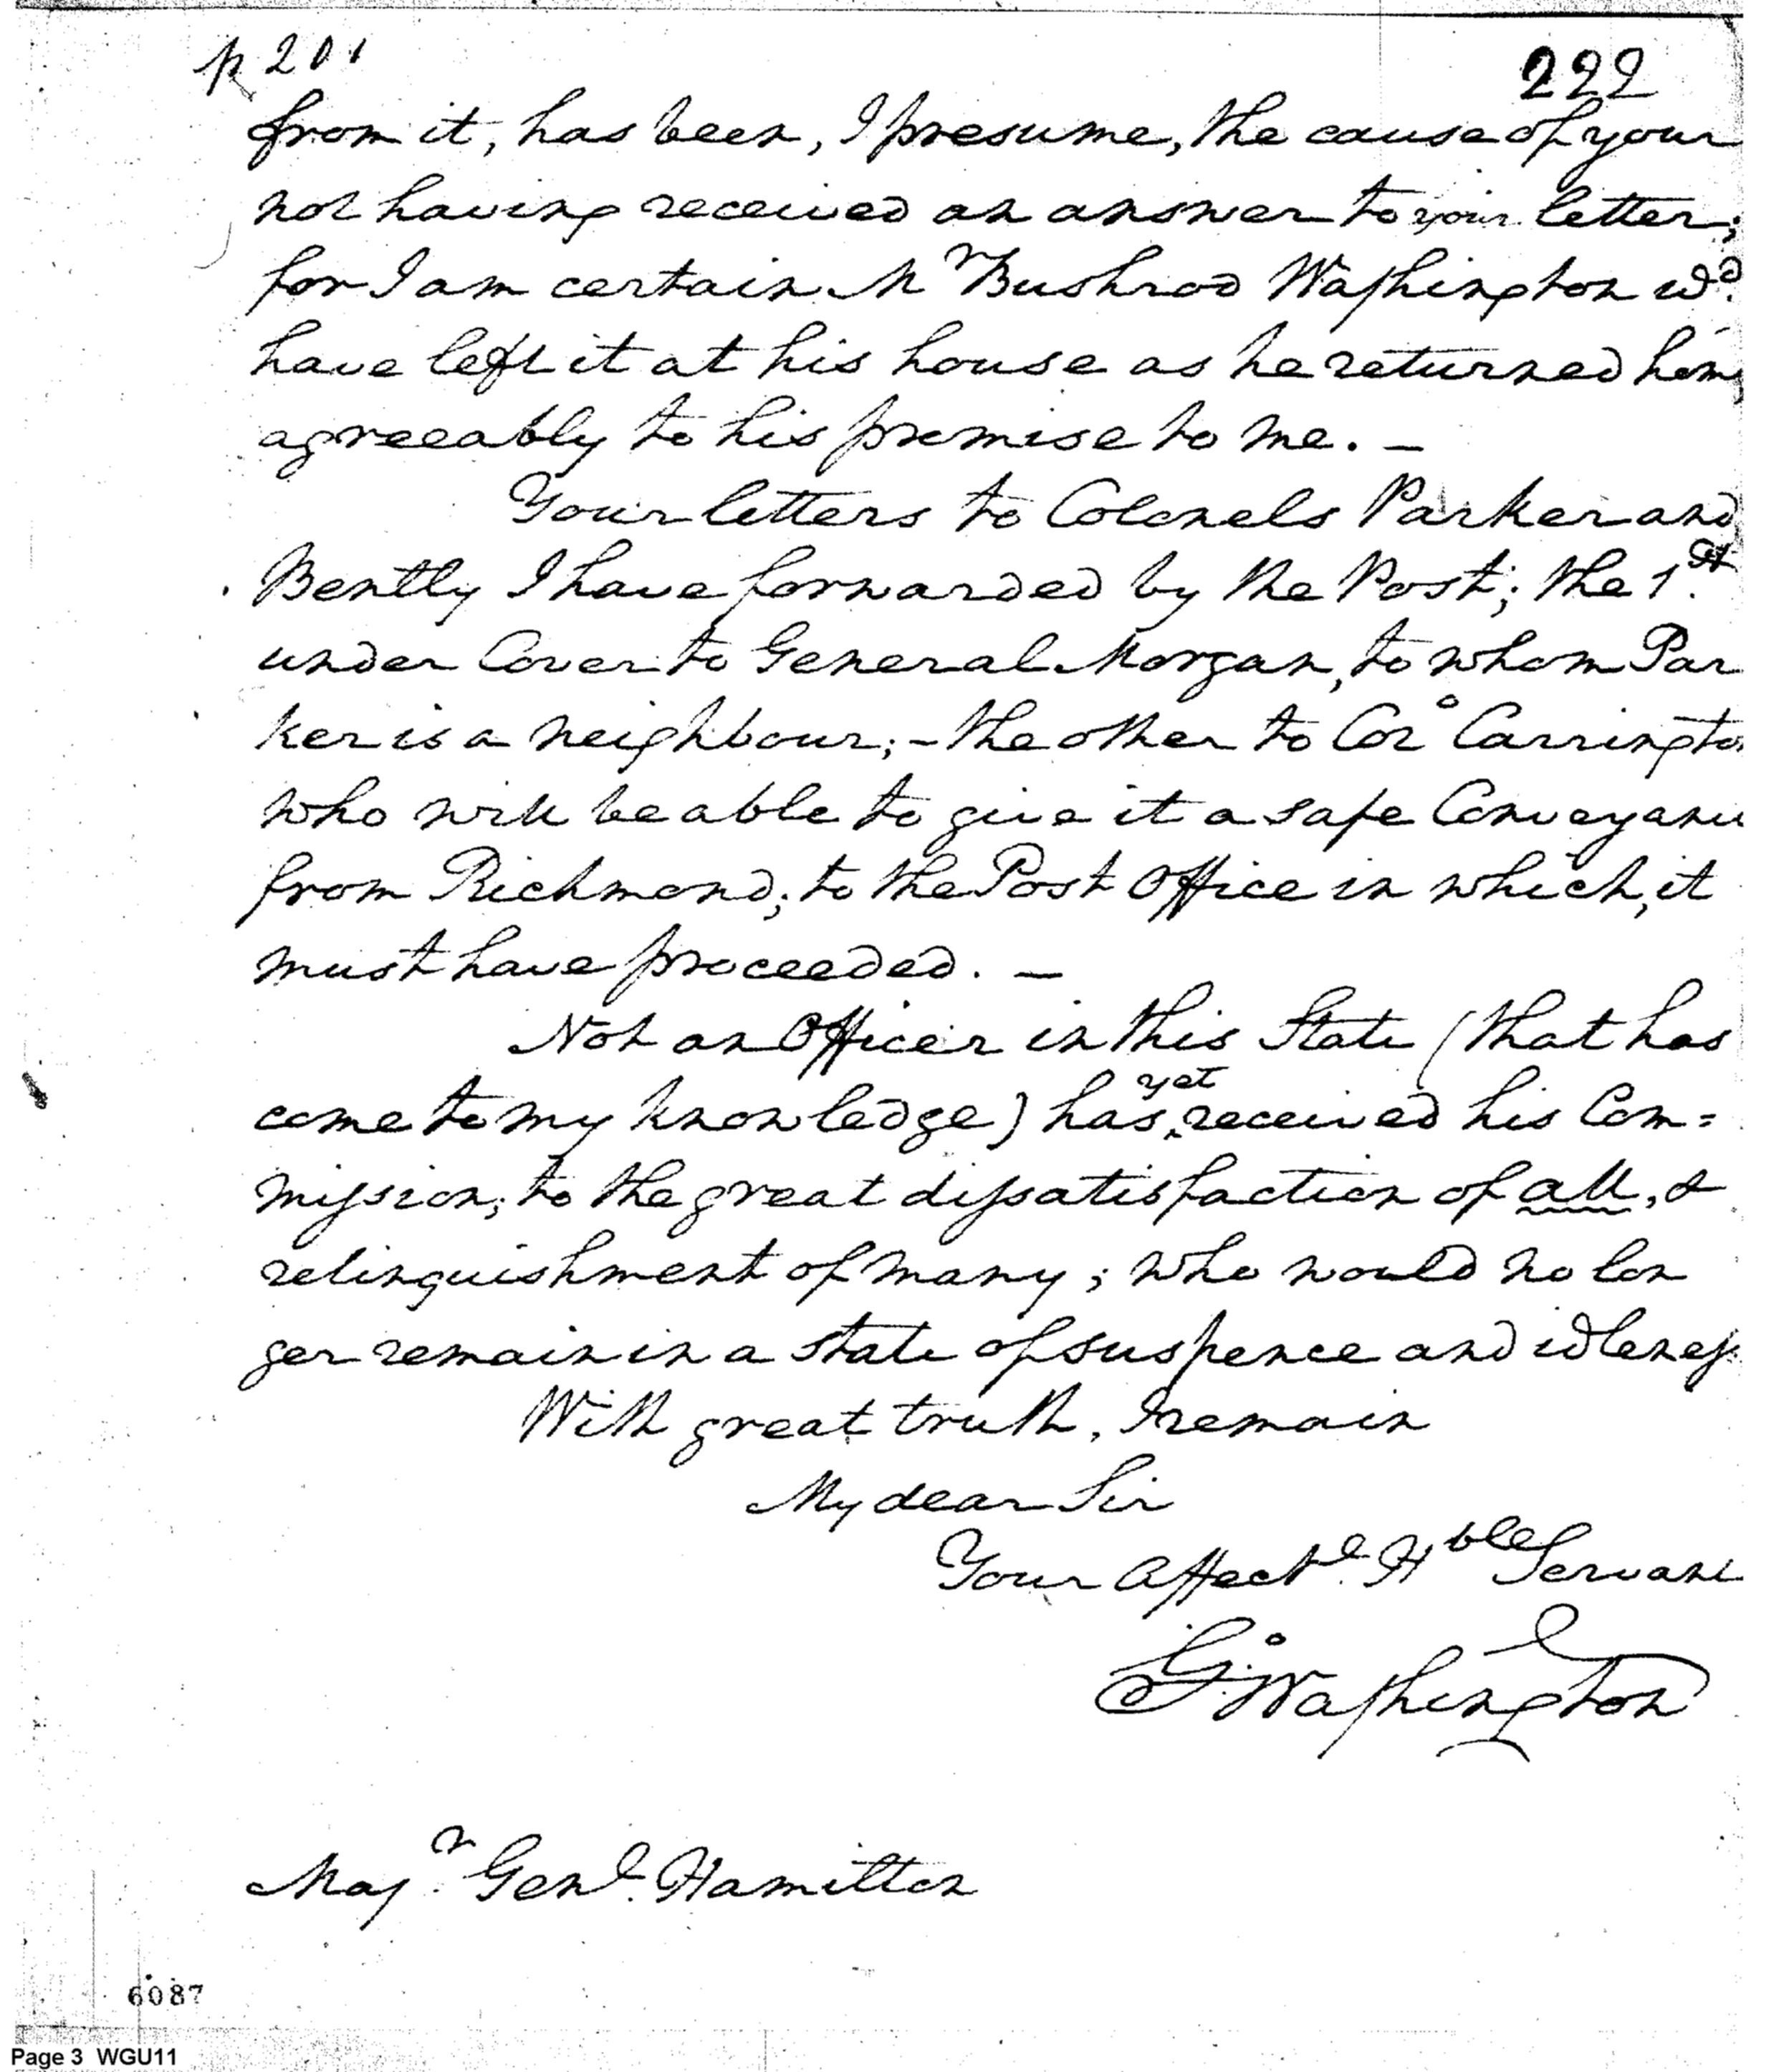 p 201
222
from it, has been, I presume, the cause of your
not having received an answer to your letter;
for I am certain Mr Bushrod Washington wd.
have left it at his house as he returned home
agreeably to his promise to me. —
Your letters to Colonels Parker and
Bently I have forwarded by the Post; the 1st.
under Cover to General Morgan, to whom Par
ker is a neighbour; – the other to Colo Carrington
who will be able to give it a safe Conveyance
from Richmond; to the Post Office in which, it
must have proceeded. —
Not an Officer in this State (that has
yet
come to my knowledge) has ‸ received his Com=
mission; to the great dissatisfaction of all, &
relinquishment of many; who would no lon
ger remain in a state of suspence and idleness.
With great truth, I remain
My dear Sir
Your Affecte. Hble Servant
Go: Washington
Majr. Genl. Hamilton
6087
Page 3 WGU11